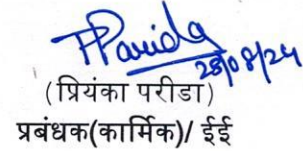 PParida
28/08/24
(प्रियंका परीडा)
प्रबंधक(कार्मिक)/ ईई